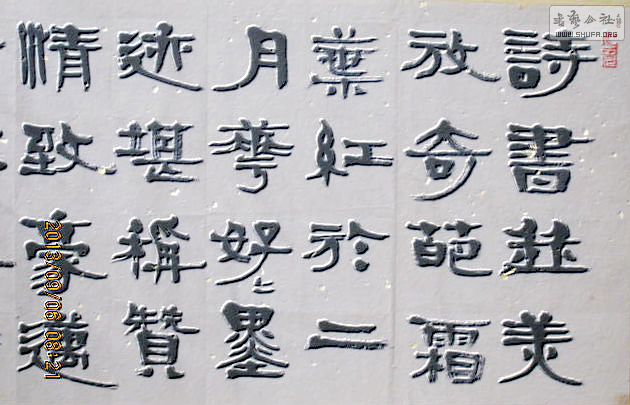 詩書並美
放奇葩霜
葉紅於二
月華好〻墨
迹堪稱贊
情致豪邁
書藝公社
WWW.SHUFA.ORG
2013/09/06 08:21